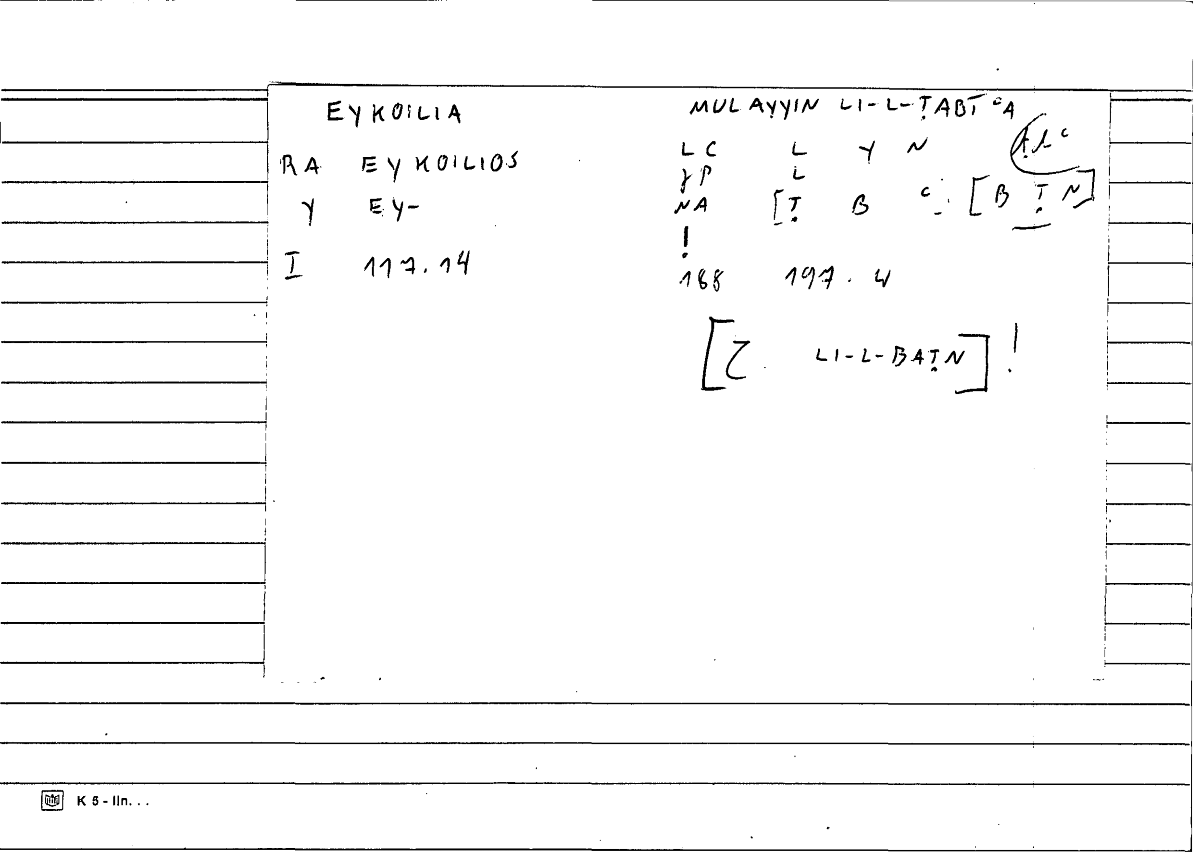 EYKOILIA
RA EYKOILIOS
Y EY-
I 117.14
MULAYYIN LI-L-ṬABĪʿA
LC L Y N
γP L
NA [Ṭ B ʿ] [B Ṭ N]
!
188 197. 4
[ LI-L-BAṬN] !
K 5 - IIn. . .